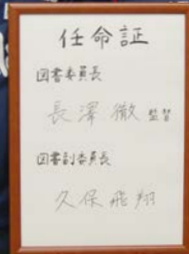 任命証
図書委員長
長澤徹 監督
図書副委員長
久保飛翔